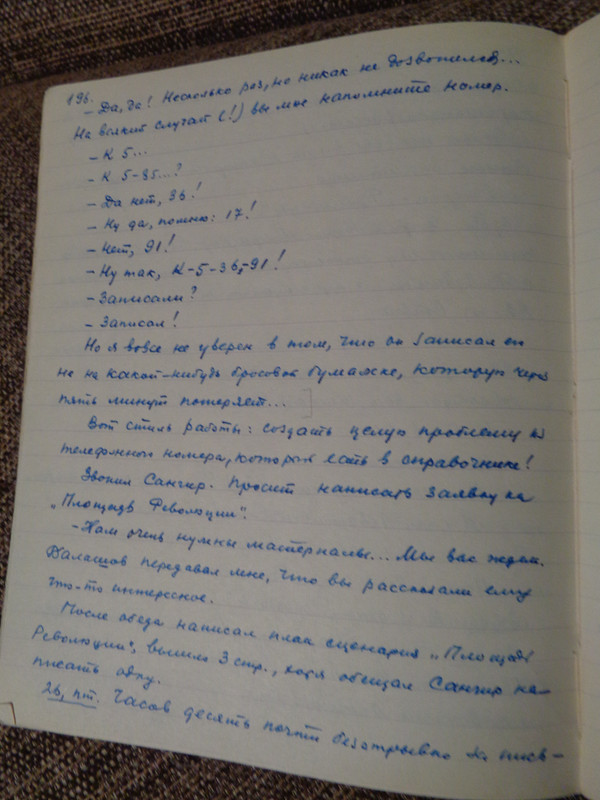 196.
– Да, да! Несколько раз, но никак не дозвонился...
На всякий случай (!) вы мне напомните номер.
– К 5...
– К 5-85...?
– Да нет, 36!
– Ну да, помню: 17!
– Нет, 91!
– Ну так, К-5-36-91!
– Записали?
– Записал!
Но я вовсе не уверен в том, что он записал его
не на какой-нибудь бросовой бумажке, которую через
пять минут потеряет...
Вот стиль работы: создать целую проблему из
телефонного номера, который есть в справочнике!
Звонил Сангир. Просит написать заявку на
„Площадь Революции".
– Нам очень нужны материалы... Мы вас ждем.
Балашов передавал мне, что вы рассказали ему
что-то интересное.
После обеда написал план сценария „Площадь
Революции", вышло 3 стр., хотя обещал Сангир на-
писать одну.
26, пт. Часов десять почти безотрывно писа-